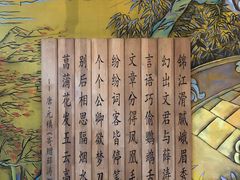 锦江滑腻峨眉
幻出文君与薛涛
言语巧偷鹦鹉舌
文章分得凤凰毛
纷纷词客皆停笔
个个公卿欲梦刀
别后相思隔烟水
菖蒲花发五云高
唐·元稹《寄赠薛涛